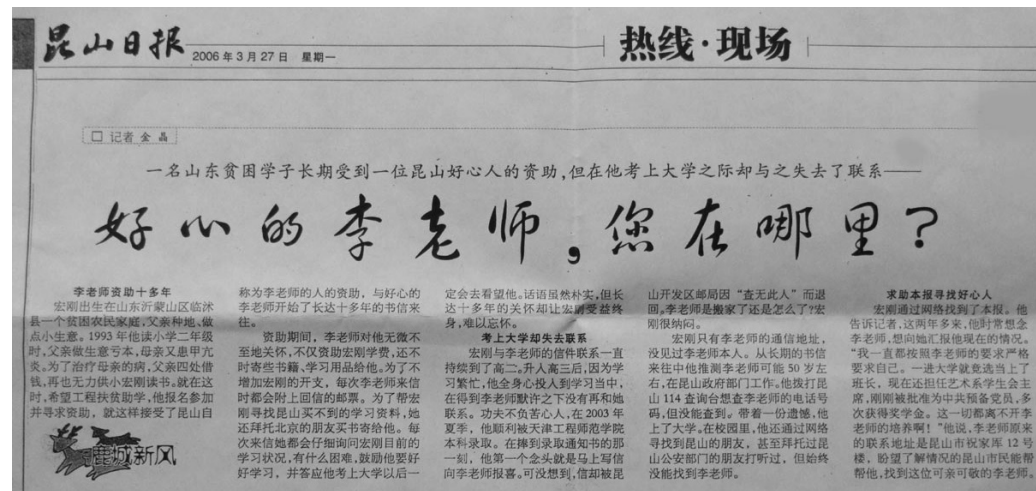 昆山日报
2006年3月27日 星期一
热线·现场
□ 记者 金 晶
一名山东贫困学子长期受到一位昆山好心人的资助,但在他考上大学之际却与之失去了联系——
好心的李老师,您在哪里?
李老师资助十多年
宏刚出生在山东沂蒙山区临沭
县一个贫困农民家庭,父亲种地、做
点小生意。1993年他读小学二年级
时,父亲做生意亏本,母亲又患甲亢
炎。为了治疗母亲的病,父亲四处借
钱,再也无力供小宏刚读书。就在这
时,希望工程扶贫助学,他报名参加
并寻求资助,就这样接受了昆山自
鹿城新风
称为李老师的人的资助,与好心的
李老师开始了长达十多年的书信来
往。
资助期间,李老师对他无微不
至地关怀,不仅资助宏刚学费,还不
时寄些书籍、学习用品给他。为了不
增加宏刚的开支,每次李老师来信
时都会附上回信的邮票。为了帮宏
刚寻找昆山买不到的学习资料,她
还拜托北京的朋友买书寄给他。每
次来信她都会仔细询问宏刚目前的
学习状况,有什么困难,鼓励他要好
好学习,并答应他考上大学以后一
定会去看望他。话语虽然朴实,但长
达十多年的关怀却让宏刚受益终
身,难以忘怀。
考上大学却失去联系
宏刚与李老师的信件联系一直
持续到了高二。升入高三后,因为学
习繁忙,他全身心投入到学习当中,
在得到李老师默许之下没有再和她
联系。功夫不负苦心人,在2003年
夏季,他顺利被天津工程师范学院
本科录取。在捧到录取通知书的那
一刻,他第一个念头就是马上写信
向李老师报喜。可没想到,信却被昆
山开发区邮局因“查无此人”而退
回,李老师是搬家了还是怎么了?宏
刚很纳闷。
宏刚只有李老师的通信地址,
没见过李老师本人。从长期的书信
来往中他推测李老师可能50岁左
右,在昆山政府部门工作。他拨打昆
山114查询台想查李老师的电话号
码,但没能查到。带着一份遗憾,他
上了大学。在校园里,他还通过网络
寻找到昆山的朋友,甚至拜托过昆
山公安部门的朋友打听过,但始终
没能找到李老师。
求助本报寻找好心人
宏刚通过网络找到了本报。他
告诉记者,这两年多来,他时常想念
李老师,想向她汇报他现在的情况。
“我一直都按照李老师的要求严格
要求自己。一进大学就竞选当上了
班长,现在还担任艺术系学生会主
席,刚刚被批准为中共预备党员,多
次获得奖学金。这一切都离不开李
老师的培养啊!”他说,李老师原来
的联系地址是昆山市祝家厍12号
楼,盼望了解情况的昆山市民能帮
帮他,找到这位可亲可敬的李老师。